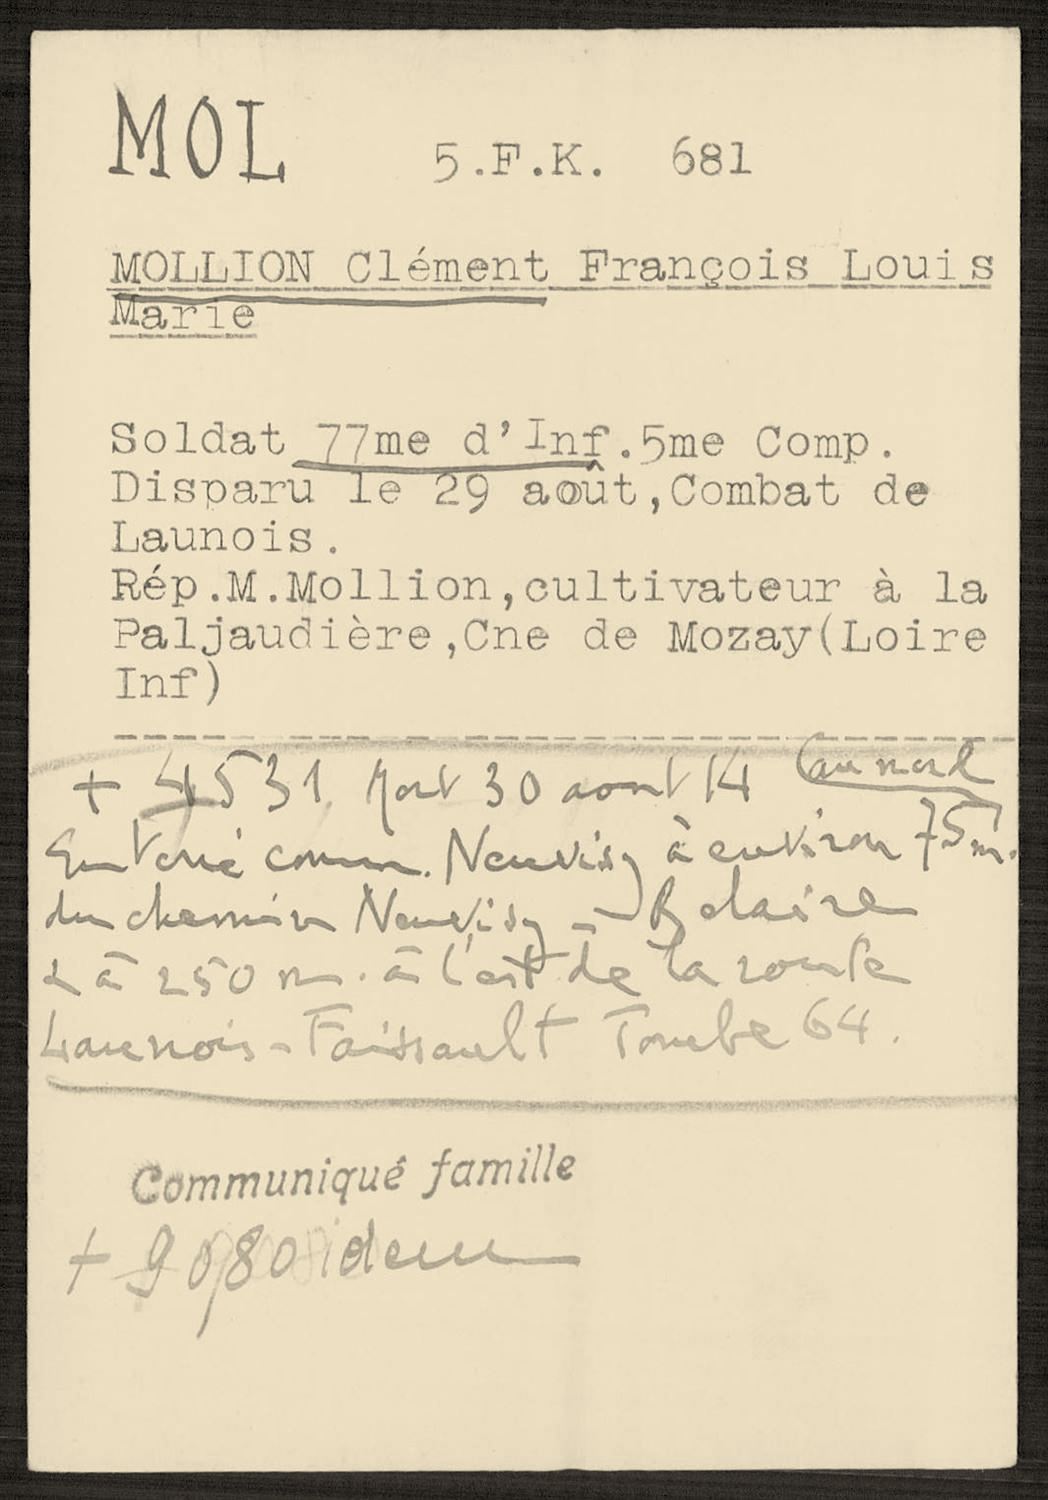 MOL 5.F.K. 681
MOLLION Clément François Louis
Marie
Soldat 77me d'Inf.5me Comp.
Disparu le 29 août,Combat de
Launois.
Rép.M.Mollion,cultivateur à la
Paljaudière,Cne de Mozay(Loire
Inf)
+ 4531 Mort 30 aout 14 (au nord
Enterré comm. Neuvisy à environ 75 m.
du chemin Neuvisy - Belaire
à 250 m. à l'est de la route
Launois - Faissault Tombe 64.
Communiqué famille
+ 9080 idem